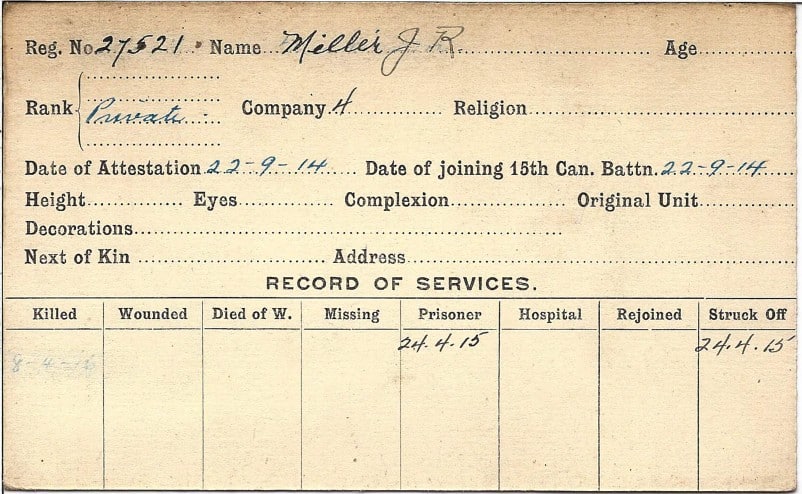 Reg. No. 27521 Name Miller J R. Age
Rank Private Company 4 Religion
Date of Attestation 22-9-14 Date of joining 15th Can. Battn. 22-9-14
Height Eyes Complexion Original Unit
Decorations
Next of Kin Address
RECORD OF SERVICES.
Killed Wounded Died of W. Missing Prisoner Hospital Rejoined Struck Off
24.4.15 24.4.15